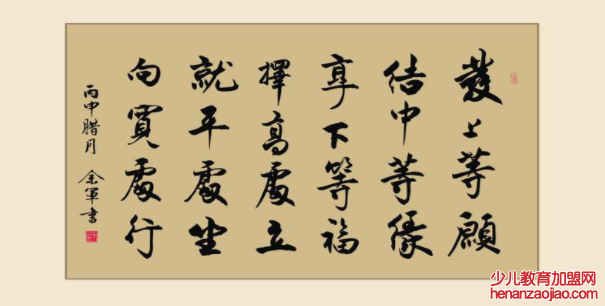 發上等願
結中等緣
享下等福
擇高處立
就平處坐
向寬處行
丙申腊月 余軍書
少儿教育加盟网
henanzaojiao.com